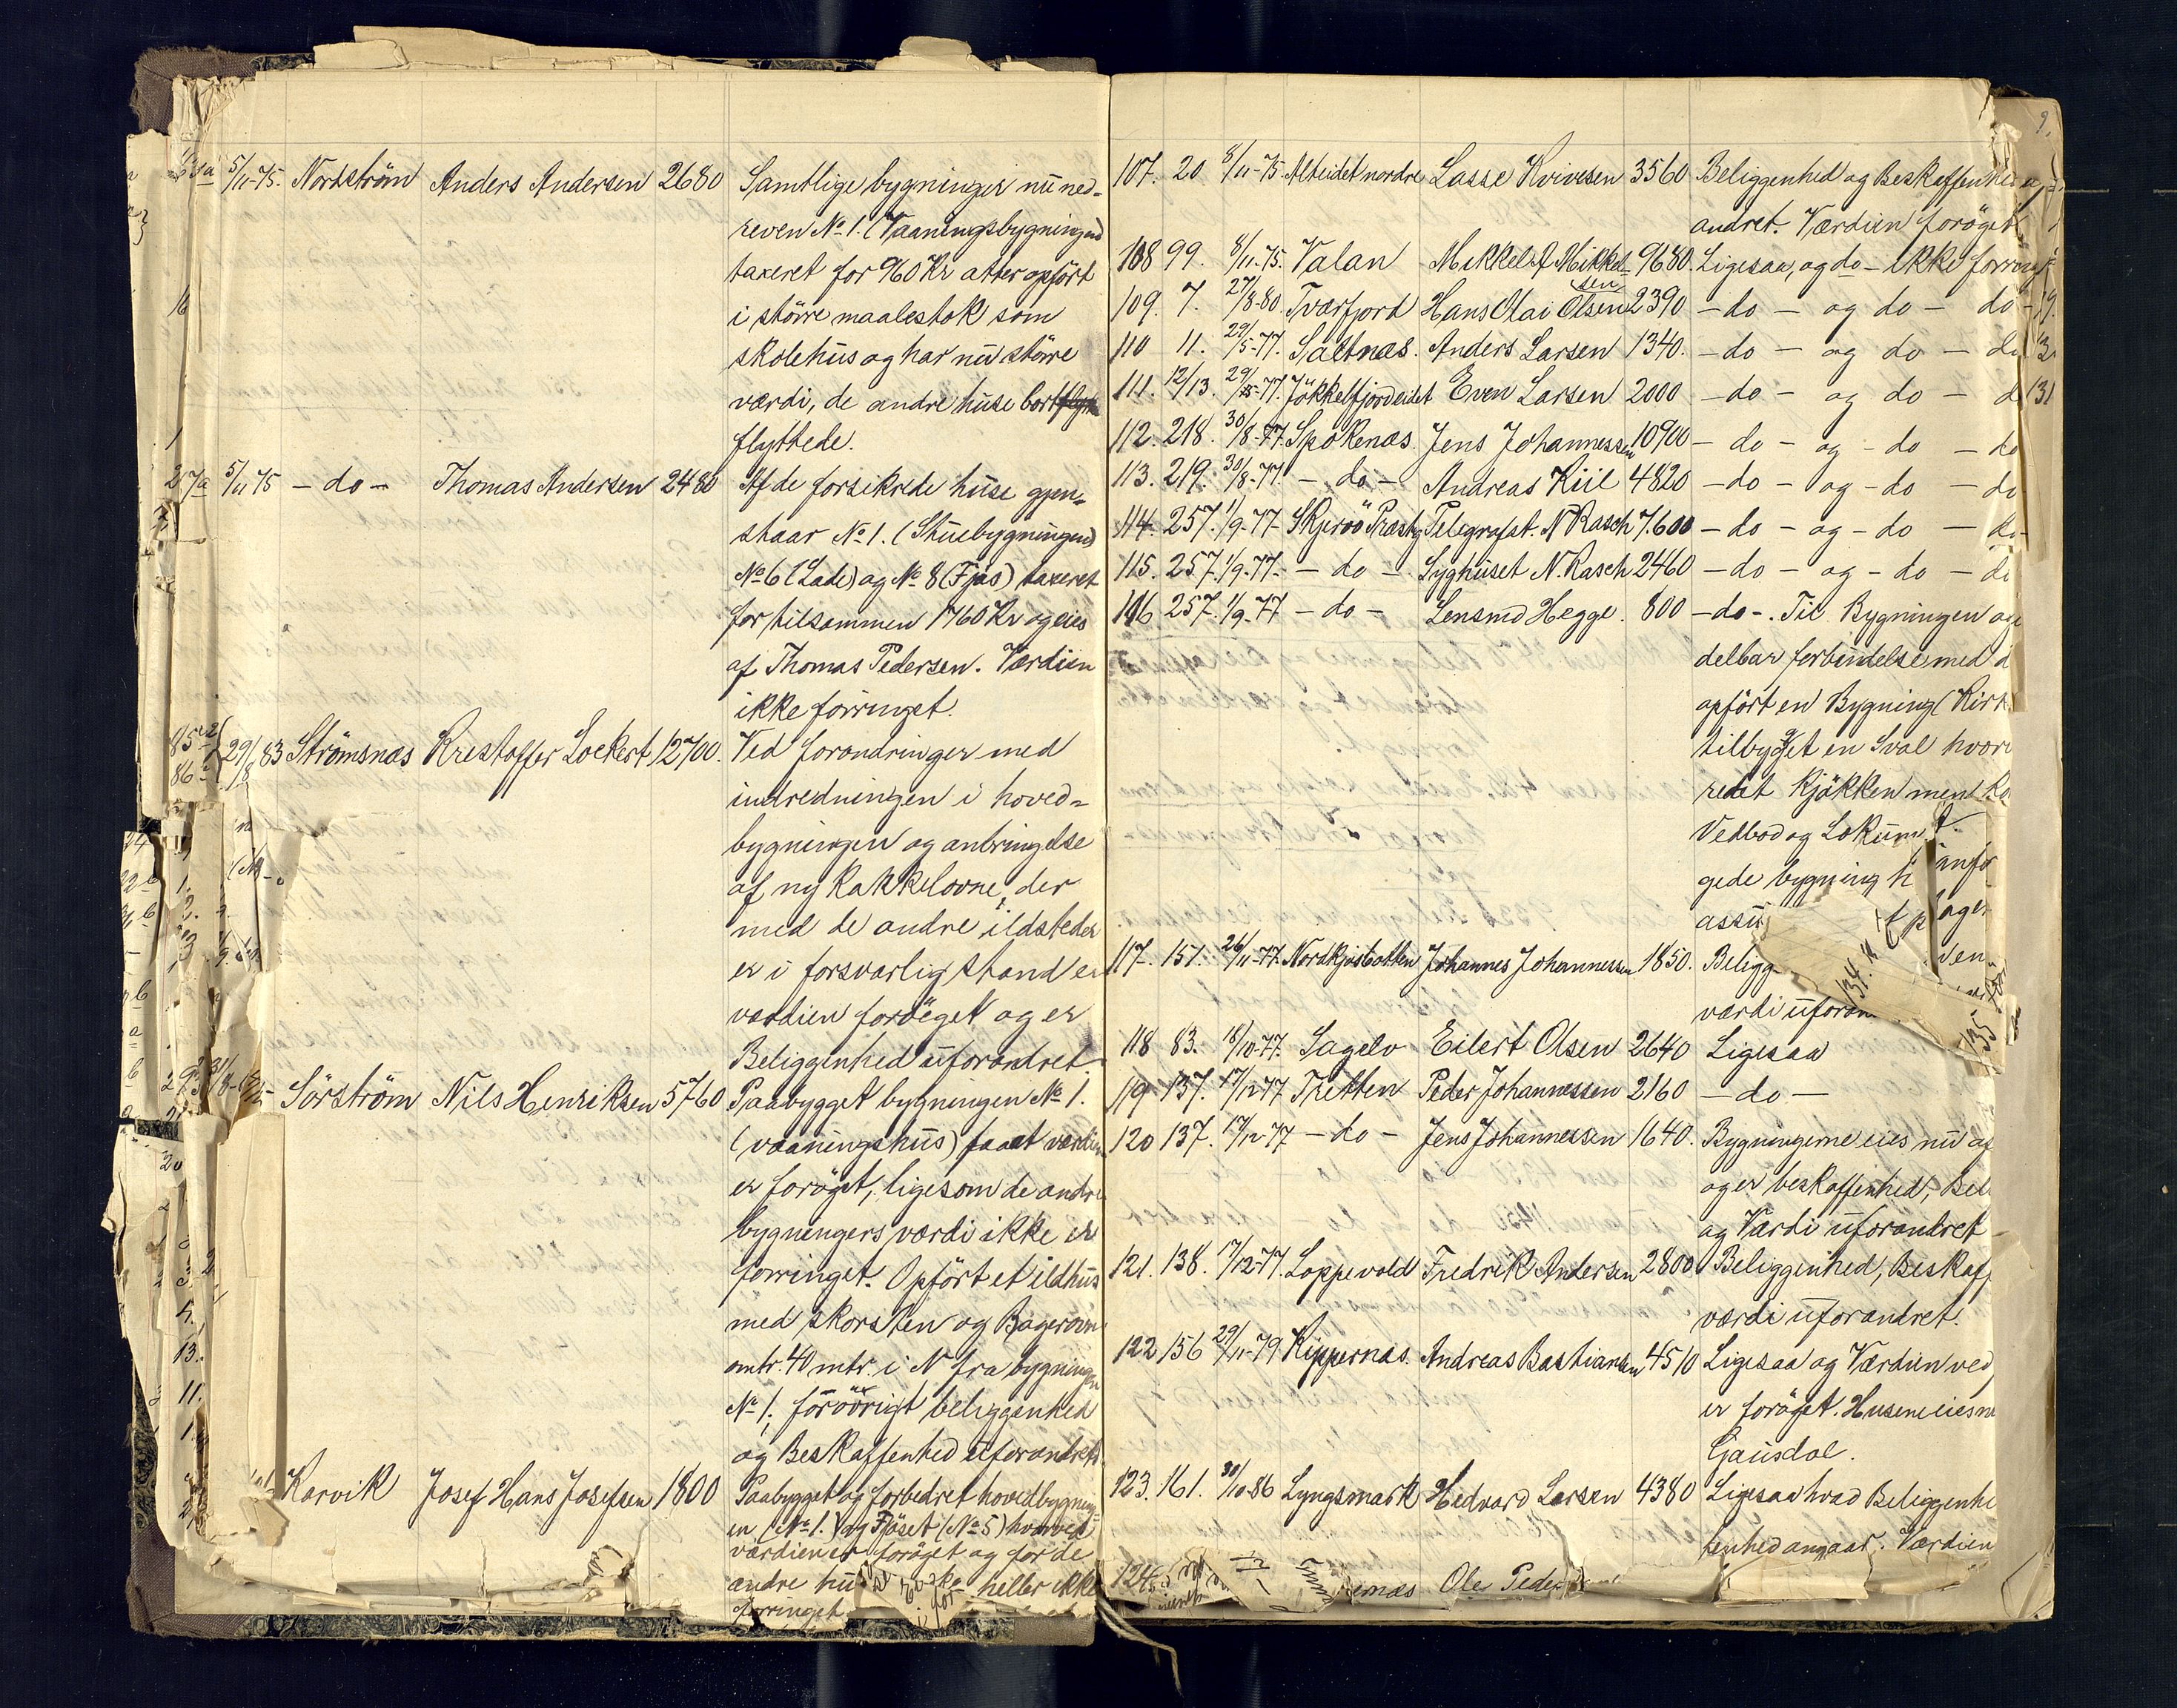 5/11-75. Nordström Anders Andersen 2680 Samtlige bygninger nu ned-
reven No 1. (Vaaningsbygningen)
taxeret for 960 Kr atter opfört
i större maalestok som
skolehus og har nu större
værdi, de andre huse bort
flyttede.
27a 5/11 75 - do - Thomas Andersen 2480 Af de forsikrede huse gjen-
staar No 1. (Stuebygningen)
No 6 (Lade) og No 8 (Fjøs) taxeret
for tilsammen 1760 Kr og eies
af Thomas Pedersen. Værdien
ikke forringet.
85 86 29/8 83 Strömsnæs Kristoffer Lockert 12700. Ved forandringer med
indredningen i hoved-
bygningen og anbringelse
af ny kakkelovne, der
med de andre ildsteder
er i forsvarlig stand er
værdien foröget og er
Beliggenhed uforandret.
Sörström Nils Henriksen 5760 Paabygget bygningen No 1.
(vaaningshus) faaet værdien
er foröget, ligesom de andre
bygningers værdi ikke er
forringet. Opfört et ildhus
med skorsten og Bagerovn
omtr. 40 mtr. i N fra bygningen
No 1; forövrigt beliggenhed
og Beskaffenhed uforandret.
Karvik Josef Hans Josefsen 1800 Paabygget og forbedret hovedbygning-
en (No 1.) og Fjöset (No 5) hvorved
værdien er foröget og for de
andre hu heller ikke
forringet
107. 20 8/11-75. Alteidet nordre Lasse Kvivesen 3560 Beliggenhed og Beskaffenhed
andret. Værdien foröget
108 99. 8/11-75. Valan Mikkel Mikkel- 9680. Ligesaa, og do - ikke forring
sen
109. 7. 27/8-80. Tværfjord Hans Olai Olsen 2390 - do - og do - do -
110 11. 29/5-77. Saltnæs. Anders Larsen 1340. - do - og do - do
111. 12/13. 29/5-77. Jökkelfjordeidet Even Larsen 2000 - do - og do - d
112. 218. 30/8-77. Spokenæs. Jens Johannessen 10900 - do - og - do - do
113. 219. 30/8-77. - do - Andreas Kiil 4820 - do - og - do - do
114. 257. 1/9-77 Skjervö Præstg Telegrafst. N Rasch 7.600 - do - og - do - do
115. 257. 1/9-77. - do - Syghuset N. Rasch 2460 - do - og - do - do
116 257. 1/9-77 - do - Lensmd Hegge. 800 - do -. Til Bygningen og
delbar forbindelse med d
opfört en Bygning (
tilbygget en Sval hvori
redet Kjökken ment
Vedbod og Lokum
gede bygning
assu
117. 151. 26/11-77. Nordkjosbotten Johannes Johannessen 1850. Beligg
værdi uforan
118 83. 18/10-77. Sagelv Eilert Olsen 2640 Ligesaa
119 137. 17/12 77 Tretten Peder Johannessen 2160 - do -
120 137. 17/12 77 - do - Jens Johannessen 1640. Bygningerne eies nu af
og er beskaffenhed, Bel
og Værdi uforandret
121. 138. 17/12-77. Loppevold Fredrik Andersen 2800 Beliggenhed, Beskaf
værdi uforandret.
122 156 29/11-79 Kippernæs. Andreas Bastiansen 4510 Ligesaa og Værdien ved
er foröget. Husene eies nu
Gausdal.
123. 161. 30/10-86 Lyngsmark Hedvard Larsen 4380 Ligesaa hvad Beliggenhe
fenhed angaar. Værdien
124. Ole Peder